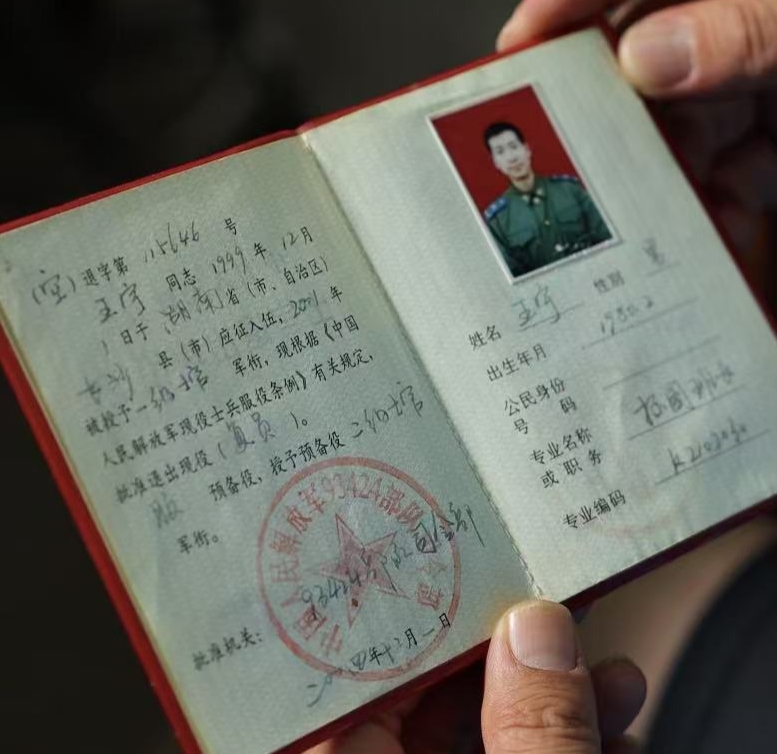 (空)退字第 115646 号
王宇 同志 1999 年 12月
1 日于 湖南 省(市、自治区)
长沙 县(市)应征入伍, 2001 年
被授予 一级士官 军衔,现根据《中国
人民解放军现役士兵服役条例》有关规定,
批准退出现役(复员)。
服 预备役,授予预备役 二级士官
军衔。
批准机关: 93424部队司令部
二〇〇四年十二月一日
中国人民解放军93424部队
姓名 王宇 性别 男
出生年月 1980.2
公民身份
号 码
专业名称
或 职 务
专业编码